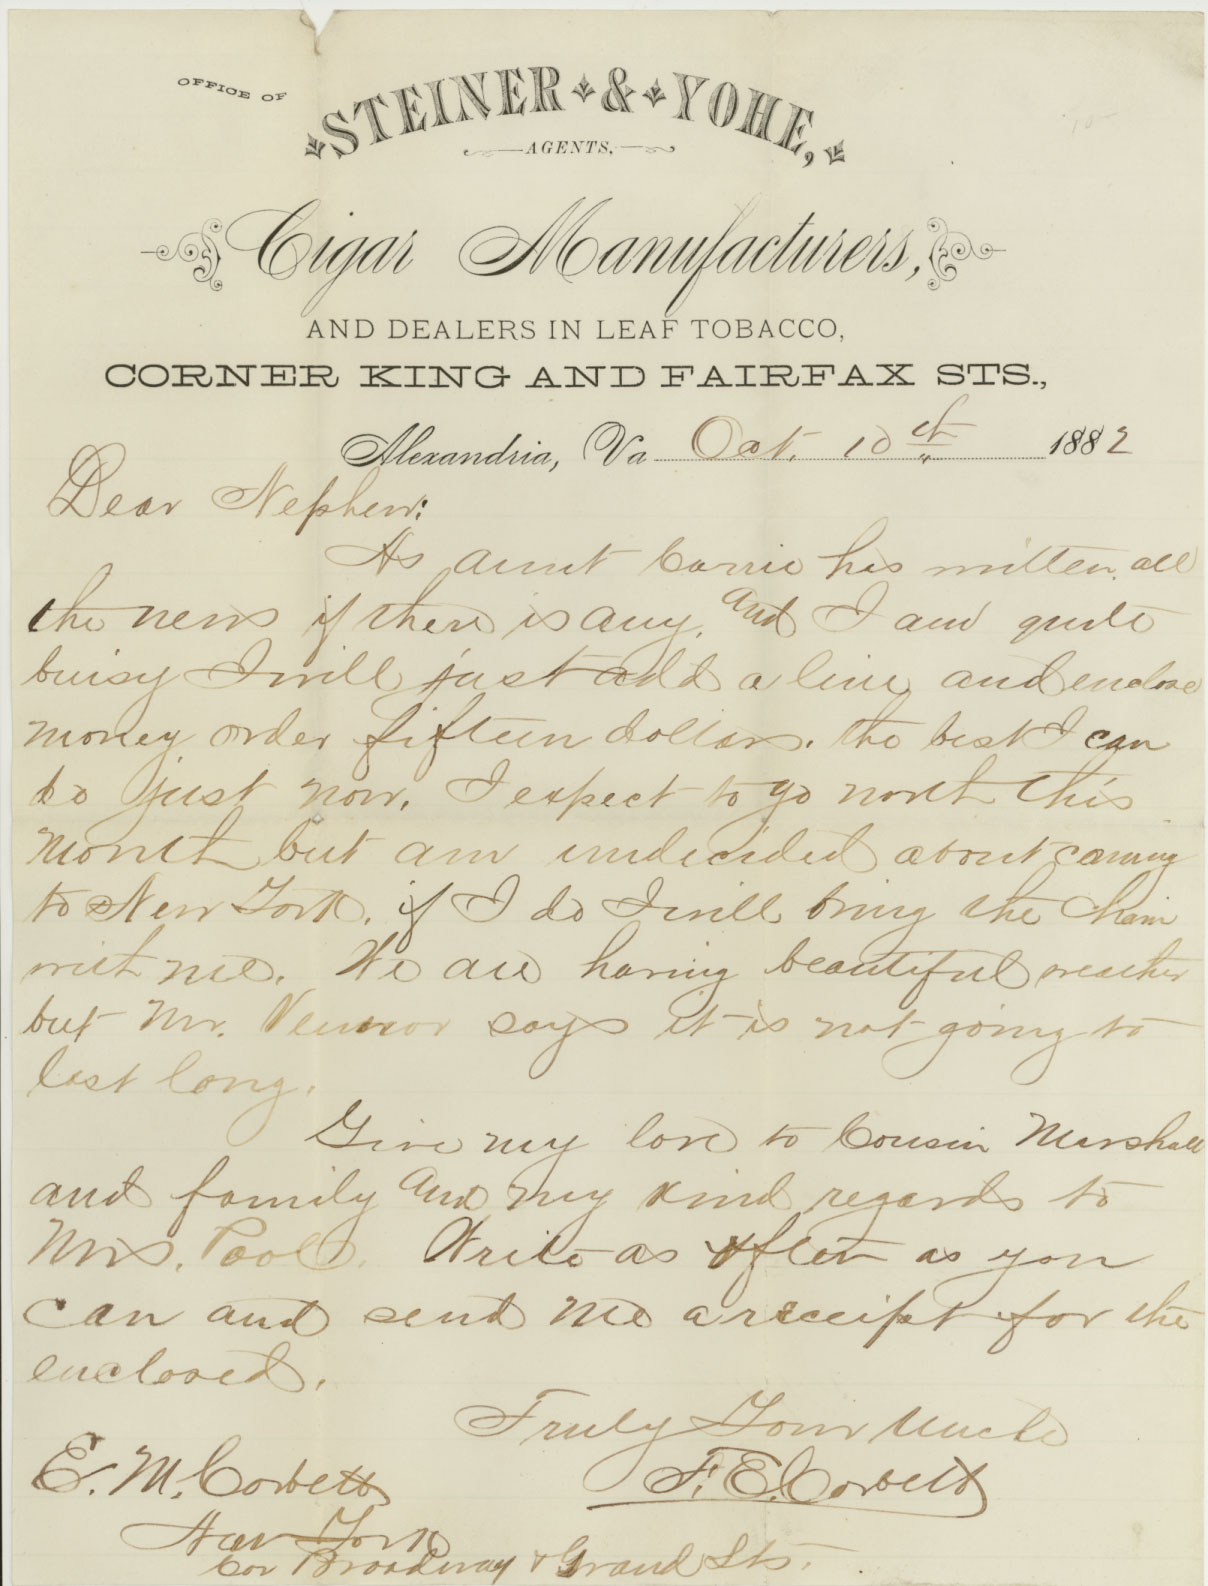 OFFICE OF
STEINER & YOHE,
AGENTS,
Cigar Manufacturers,
AND DEALERS IN LEAF TOBACCO,
CORNER KING AND FAIRFAX STS.,
Alexandria, Va Oct. 10th 1882
Dear Nephew:
As aunt Carrie has written all
the news if there is any, and I am quite
buisy I will just add a line and enclose
money order fifteen dollars. the best I can
do just now, I expect to go north this
month but am undecided about coming
to New York, if I do I will bring the chain
with me. We are having beautiful weather
but Mr. Vennor says it is not going to
last long.
Give my love to Cousin Marshall
and family and my kind regards to
Mrs. Pool. Write as often as you
can and send me a receipt for the
enclosed.
Truly Your Uncle
E. M. Corbett F. E. Corbett
New York
Cor Broadway & Grand Sts.